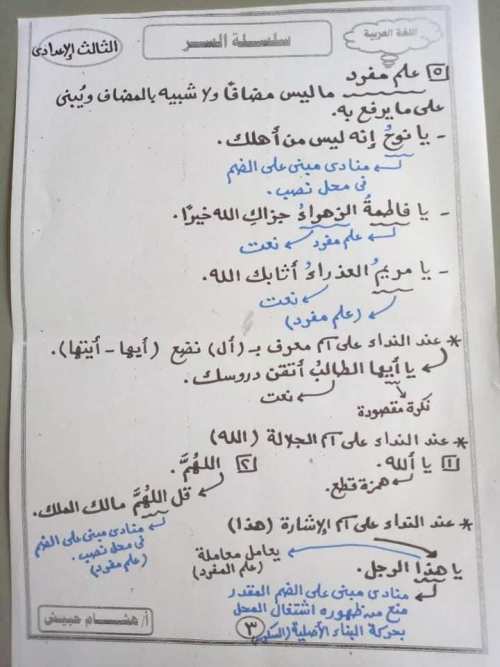 اللغة العربية
سلسلة السر
الثالث الإعدادى
٥ علم مفرد
ما ليس مضافًا ولا شبيه بالمضاف ويُبنى
على ما يرفع به.
- يا نوحُ إنه ليس من أهلك.
منادى مبنى على الضم
فى محل نصب.
- يا فاطمةُ الزهراءُ جزاكِ الله خيرًا.
علم مفرد نعت
- يا مريمُ العذراءُ أثابك الله.
نعت
(علم مفرد)
* عند النداء على اسم معرف بـ (أل) نضع (أيها - أيتها).
يا أيها الطالبُ أتقن دروسك.
نعت
نكرة مقصودة
* عند النداء على اسم الجلالة (الله)
١ يا ألله. ٢ اللهُمَّ.
همزة قطع.
قل اللهُمَّ مالك الملك.
منادى مبنى على الضم
فى محل نصب.
(علم مفرد)
* عند النداء على اسم الإشارة (هذا)
يا هذا الرجل.
يعامل معاملة
(علم المفرد)
منادى مبنى على الضم المقدر
منع من ظهوره اشتغال المحل
بحركة البناء الأصلية (السكون)
٣
أ/ هشام حبيش